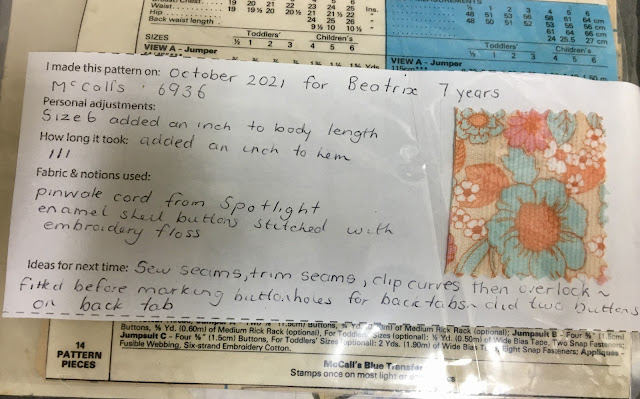 Waist 19 20 21 22 23 24 Ins.
Hip 19 19½ 20 20½ 21 21½ 22 "
Back waist length 24 25 26 "
9½ 10 10½ "
SIZES Toddlers' Children's
½ 1 2 3 4 5 6
VIEW A - Jumper
½ 1 2 3 4 5 6
48 51 53 56 58 61 64 cm
48 50 51 52 53 55 56 cm
61 64 66 cm
24 25.5 27 cm
Toddlers' Children's
½ 1 2 3 4 5 6
VIEW A - Jumper
115cm***
I made this pattern on: October 2021 for Beatrix 7 years
McCalls 6936
Personal adjustments:
Size 6 added an inch to body length
How long it took: added an inch to hem
111
Fabric & notions used:
pinwale cord from Spotlight
enamel shell buttons stitched with
embroidery floss
Ideas for next time: Sew seams, trim seams, clip curves then overlock ~
fitted before marking buttonholes for back tabs ~ did two buttons
on back tab
14
PATTERN
PIECES
Buttons, ⅝ Yd. (0.60m) of Medium Rick Rack (optional); Jumpsuit B - Four ⅝" (1.5cm)
Jumpsuit C - Four ⅝" (1.5cm) Buttons, For Toddlers' Sizes (optional): 2 Yds. (1.90m) of Wide Bias Eight Snap Fasteners; Appliques -
Fusible Webbing, Six-strand Embroidery Cotton.
McCall's Blue Transfer
Stamps once on most light or